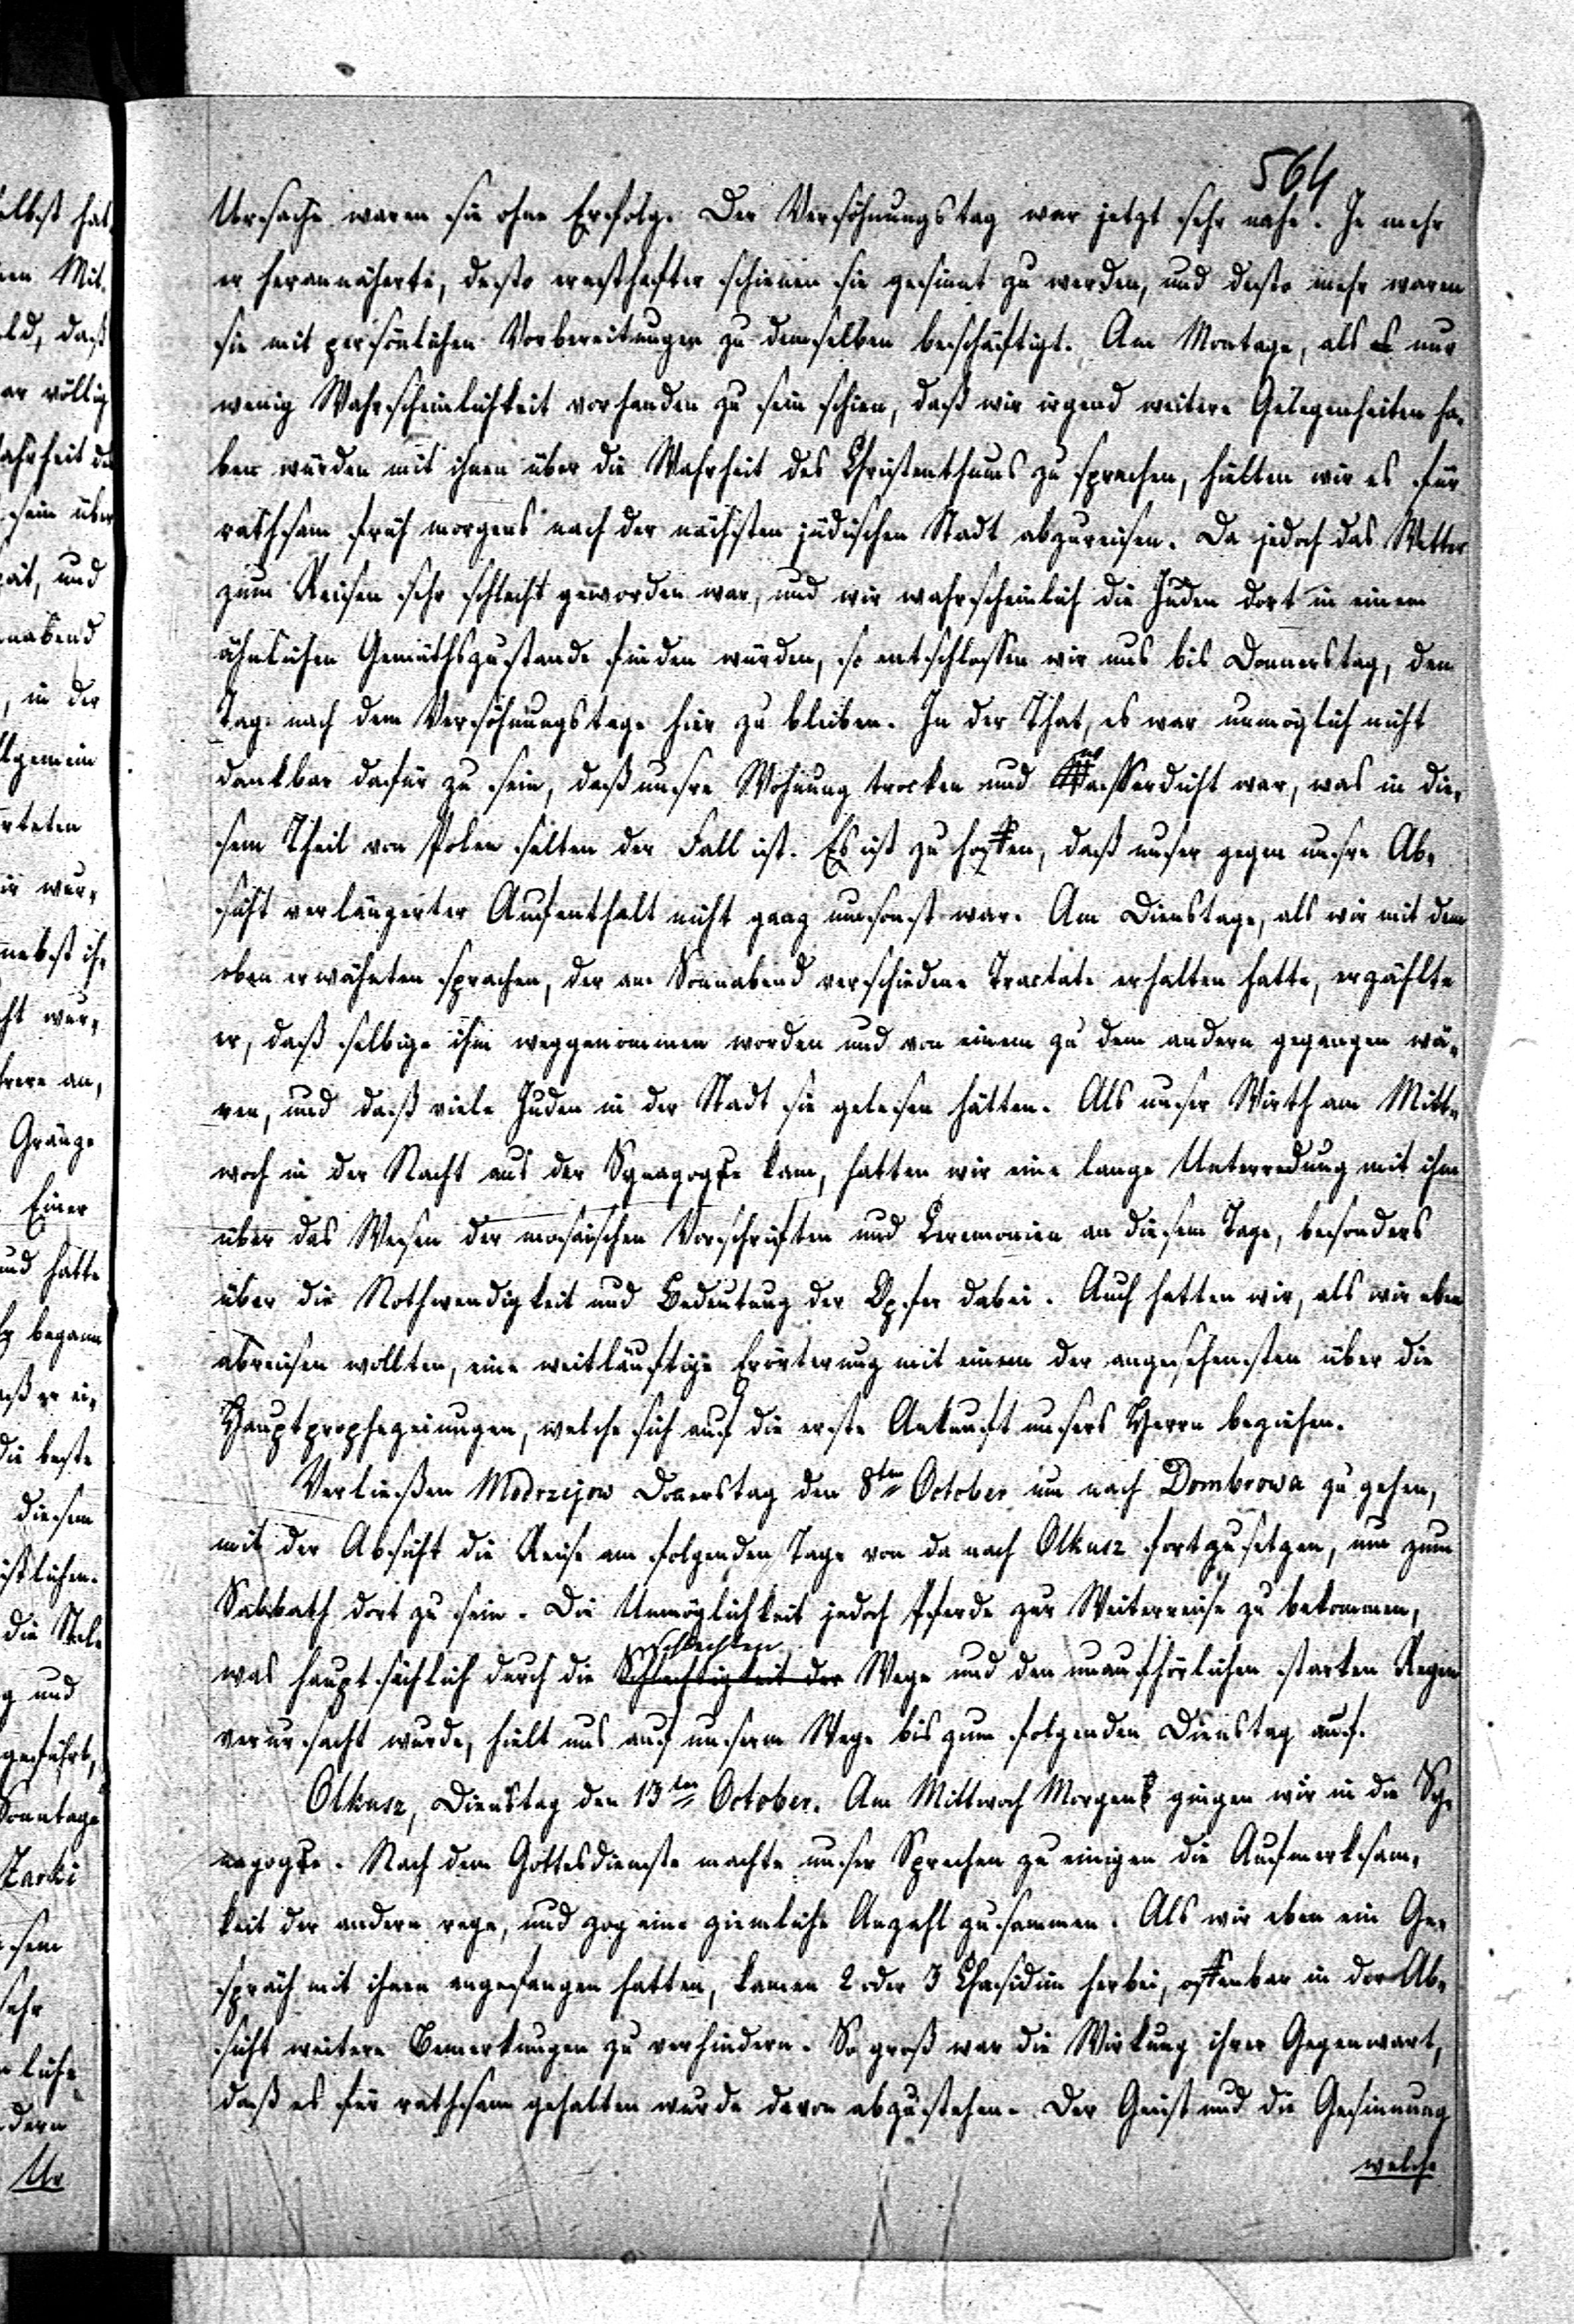 564
Ursache waren sie ohne Erfolg. Der Versöhnungstag war jetzt sehr nahe. Je mehr
er herannäherte, desto ernsthafter schienen sie gesinnt zu werden, und desto mehr waren
sie mit persönlichen Vorbereitungen zu demselben beschäftigt. Am Montage, als es nur
wenig Wahrscheinlichkeit vorhanden zu sein schien, daß wir irgend weitere Gelegenheiten ha-
ben würden mit ihnen über die Wahrheit des Christenthums zu sprechen, hielten wir es für
rathsam früh morgens nach der nächsten jüdischen Stadt abzureisen. Da jedoch das Wetter
zum Reisen sehr schlecht geworden war, und wir wahrscheinlich die Juden dort in einem
ähnlichen Gemüthszustande finden würden, so entschlossen wir uns bis Donnerstag, dem
Tage nach dem Versöhnungstage hier zu bleiben. In der That, es war unmöglich nicht
dankbar dafür zu sein, daß unsre Wohnung trocken und wasserdicht war, was in die-
sem Theil von Polen selten der Fall ist. Es ist zu hoffen, daß unser gegen unsre Ab-
sicht verlängerter Aufenthalt nicht ganz umsonst war. Am Dienstage, als wir mit dem
oben erwähnten sprachen, der am Sonnabend verschiedene Tractate erhalten hatte, erzählte
er, daß selbige ihm weggenommen worden und von einem zu dem andern gegangen wä-
ren, und daß viele Juden in der Stadt sie gelesen hätten. Als unser Wirth am Mitt-
woch in der Nacht aus der Synagoge kam, hatten wir eine lange Unterredung mit ihm
über das Wesen der mosaischen Vorschriften und Ceremonien an diesem Tage, besonders
über die Nothwendigkeit und Bedeutung der Opfer dabei. Auch hatten wir, als wir eben
abreisen wollten, eine weitläuftige Erörterung mit einem der angesehensten über die
Hauptprophezeiungen, welche sich auf die erste Ankunft unsers Herrn beziehen.
Verließen Modrzejow Donerstag den 8ten October um nach Dombrowa zu gehen,
mit der Absicht die Reise am folgenden Tage von da nach Olkusz fortzusetzen, um zum
Sabbath dort zu sein. Die Unmöglichkeit jedoch Pferde zur Weiterreise zu bekommen,
schlechten
was hauptsächlich durch die Schlechtigkeit der Wege und den unaufhörlichen starken Regen
verursacht wurde, hielt uns auf unserm Wege bis zum folgenden Dienstag auf.
Olkusz, Dienstag den 13ten October. Am Mittwoch Morgens gingen wir in die Sy-
nagoge. Nach dem Gottesdienste machte unser Sprechen zu einigen die Aufmerksam-
keit der andern rege, und zog eine ziemliche Anzahl zusammen. Als wir eben ein Ge-
spräch mit ihnen angefangen hatten, kamen 2 oder 3 Chasidim herbei, offenbar in der Ab-
sicht weitere Bemerkungen zu verhindern. So groß war die Wirkung ihrer Gegenwart,
daß es für rathsam gehalten wurde davon abzustehen. Der Geist und die Gesinnung
welche